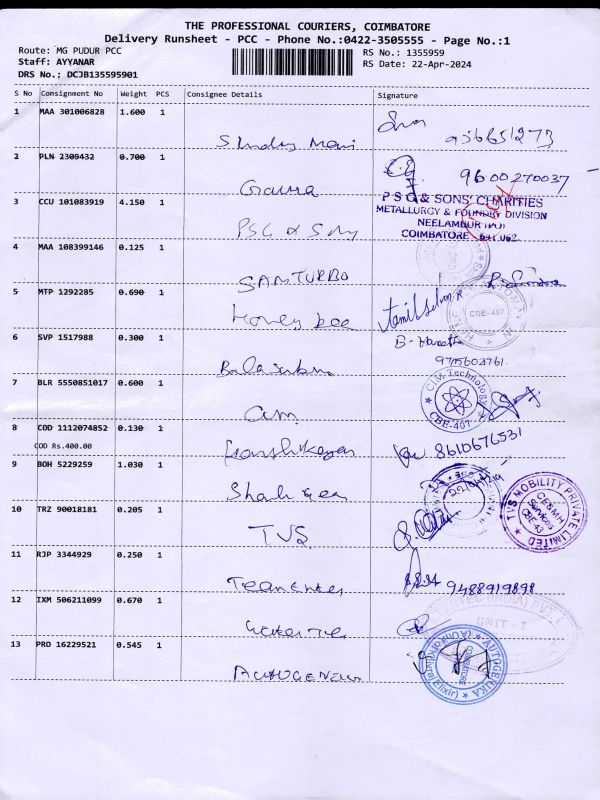 THE PROFESSIONAL COURIERS, COIMBATORE
Delivery Runsheet - PCC - Phone No.:0422-3505555 - Page No.:1
Route: MG PUDUR PCC
RS No.: 1355959
Staff: AYYANAR
RS Date: 22-Apr-2024
DRS No.; DCJB135595901
S No Consignment No Weight PCS Consignee Details Signature
1 MAA 301006828 1.600 1
936651273
2 PLN 2309432 0.700 1
9600270037
Gaura
3 CCU 101083919 4.150 1
P S G & SONS' CHARITIES
METALLURGY & FOUNDRY DIVISION
NEELAMBUR (PO)
COIMBATORE 641 062
PSG & Sons
4 MAA 108399146 0.125 1
SAMTURBO
5 MTP 1292285 0.690 1
Honey bee
CBE-407
6 SVP 1517988 0.300 1
9715602761
7 BLR 5550851017 0.600 1
CIM Technology
CBE-407
8 COD 1112074852 0.130 1
COD Rs.400.00
8610676531
9 BOH 5229259 1.030 1
10 TRZ 90018181 0.205 1
TVS
TVS MOBILITY PRIVATE LIMITED
CE&MH
Services
CBE-43
11 RJP 3344929 0.250 1
9488919898
12 IXM 506211099 0.670 1
UNIT - I
13 PRO 16229521 0.545 1
AUTOGENIKA
COIMBATORE